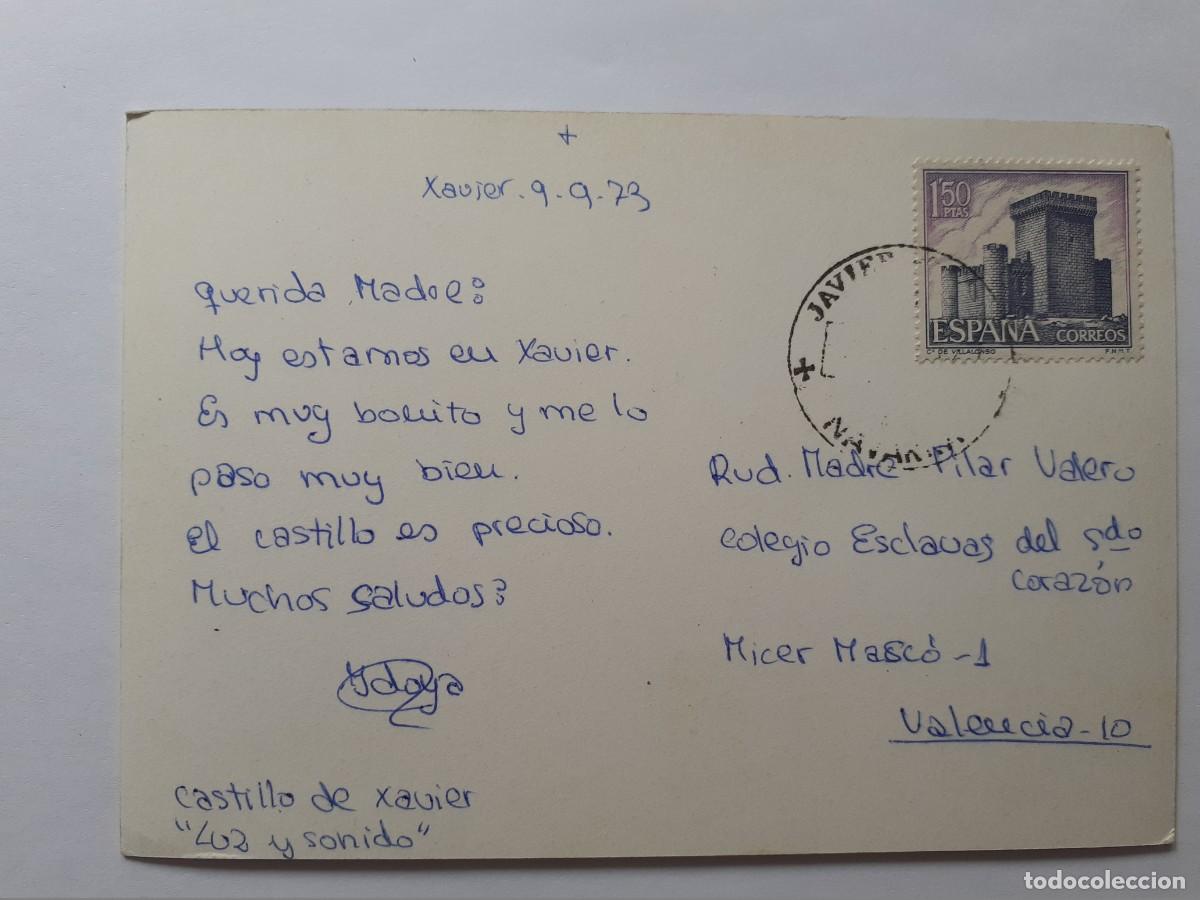 +
Xavier. 9-9-73
querida Madre:
Hoy estamos en Xavier.
Es muy bonito y me lo
paso muy bien.
el castillo es precioso.
Muchos saludos:
Ydoya
castillo de Xavier
"Luz y sonido"
1'50
PTAS
ESPAÑA CORREOS
Cº DE VILLALONSO F.N.M.T.
JAVIER
NAVARRA
Rvd. Madre Pilar Valero
colegio Esclavas del Sdo
corazón
Micer Mascó-1
Valencia-10
todocoleccion